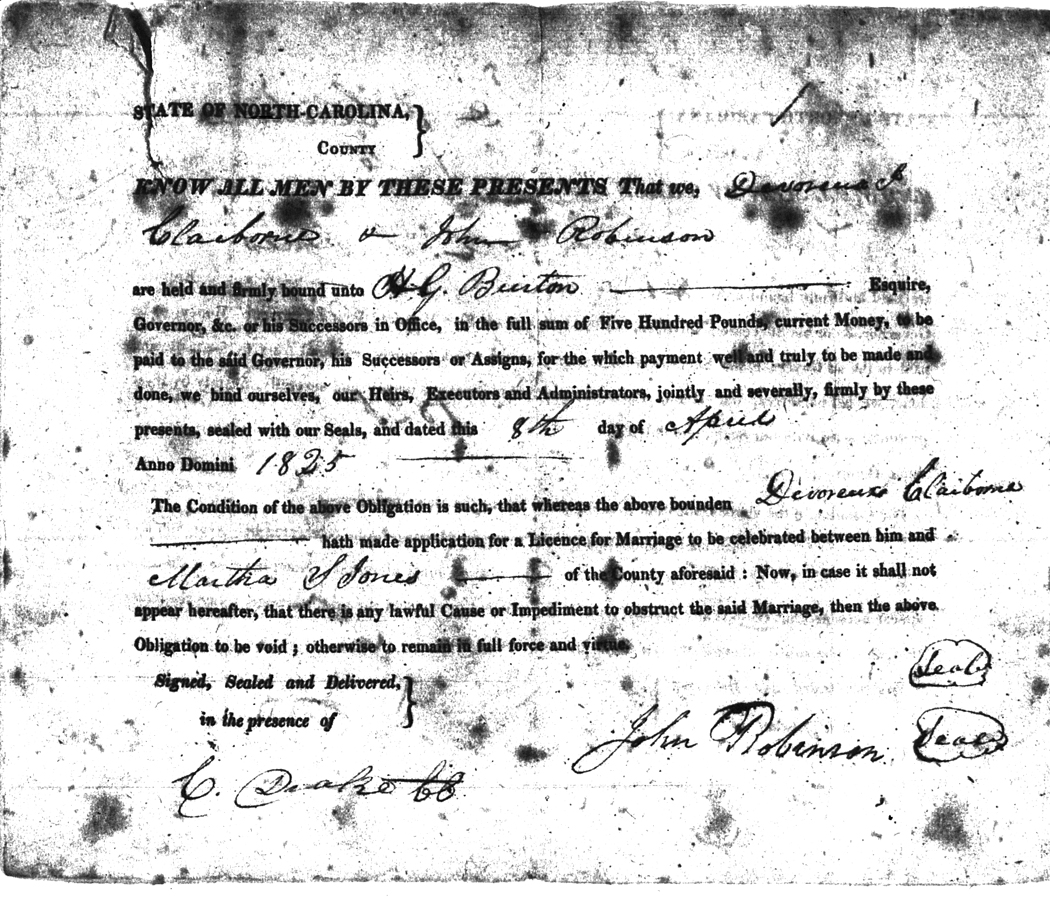 STATE OF NORTH-CAROLINA,
COUNTY
KNOW ALL MEN BY THESE PRESENTS That we, Devoreux J
Claiborne & John Robinson
are held and firmly bound unto H G. Burton Esquire,
Governor, &c. or his Successors in Office, in the full sum of Five Hundred Pounds, current Money, to be
paid to the said Governor, his Successors or Assigns, for the which payment well and truly to be made and
done, we bind ourselves, our Heirs, Executors and Administrators, jointly and severally, firmly by these
presents, sealed with our Seals, and dated this 8th day of April
Anno Domini 1825
The Condition of the above Obligation is such, that whereas the above bounden Devoreux Claiborne
hath made application for a Licence for Marriage to be celebrated between him and
Martha S Jones of the County aforesaid : Now, in case it shall not
appear hereafter, that there is any lawful Cause or Impediment to obstruct the said Marriage, then the above
Obligation to be void ; otherwise to remain in full force and virtue.
Signed, Sealed and Delivered,
in the presence of
Seal
John Robinson Seal
C. Drake CC